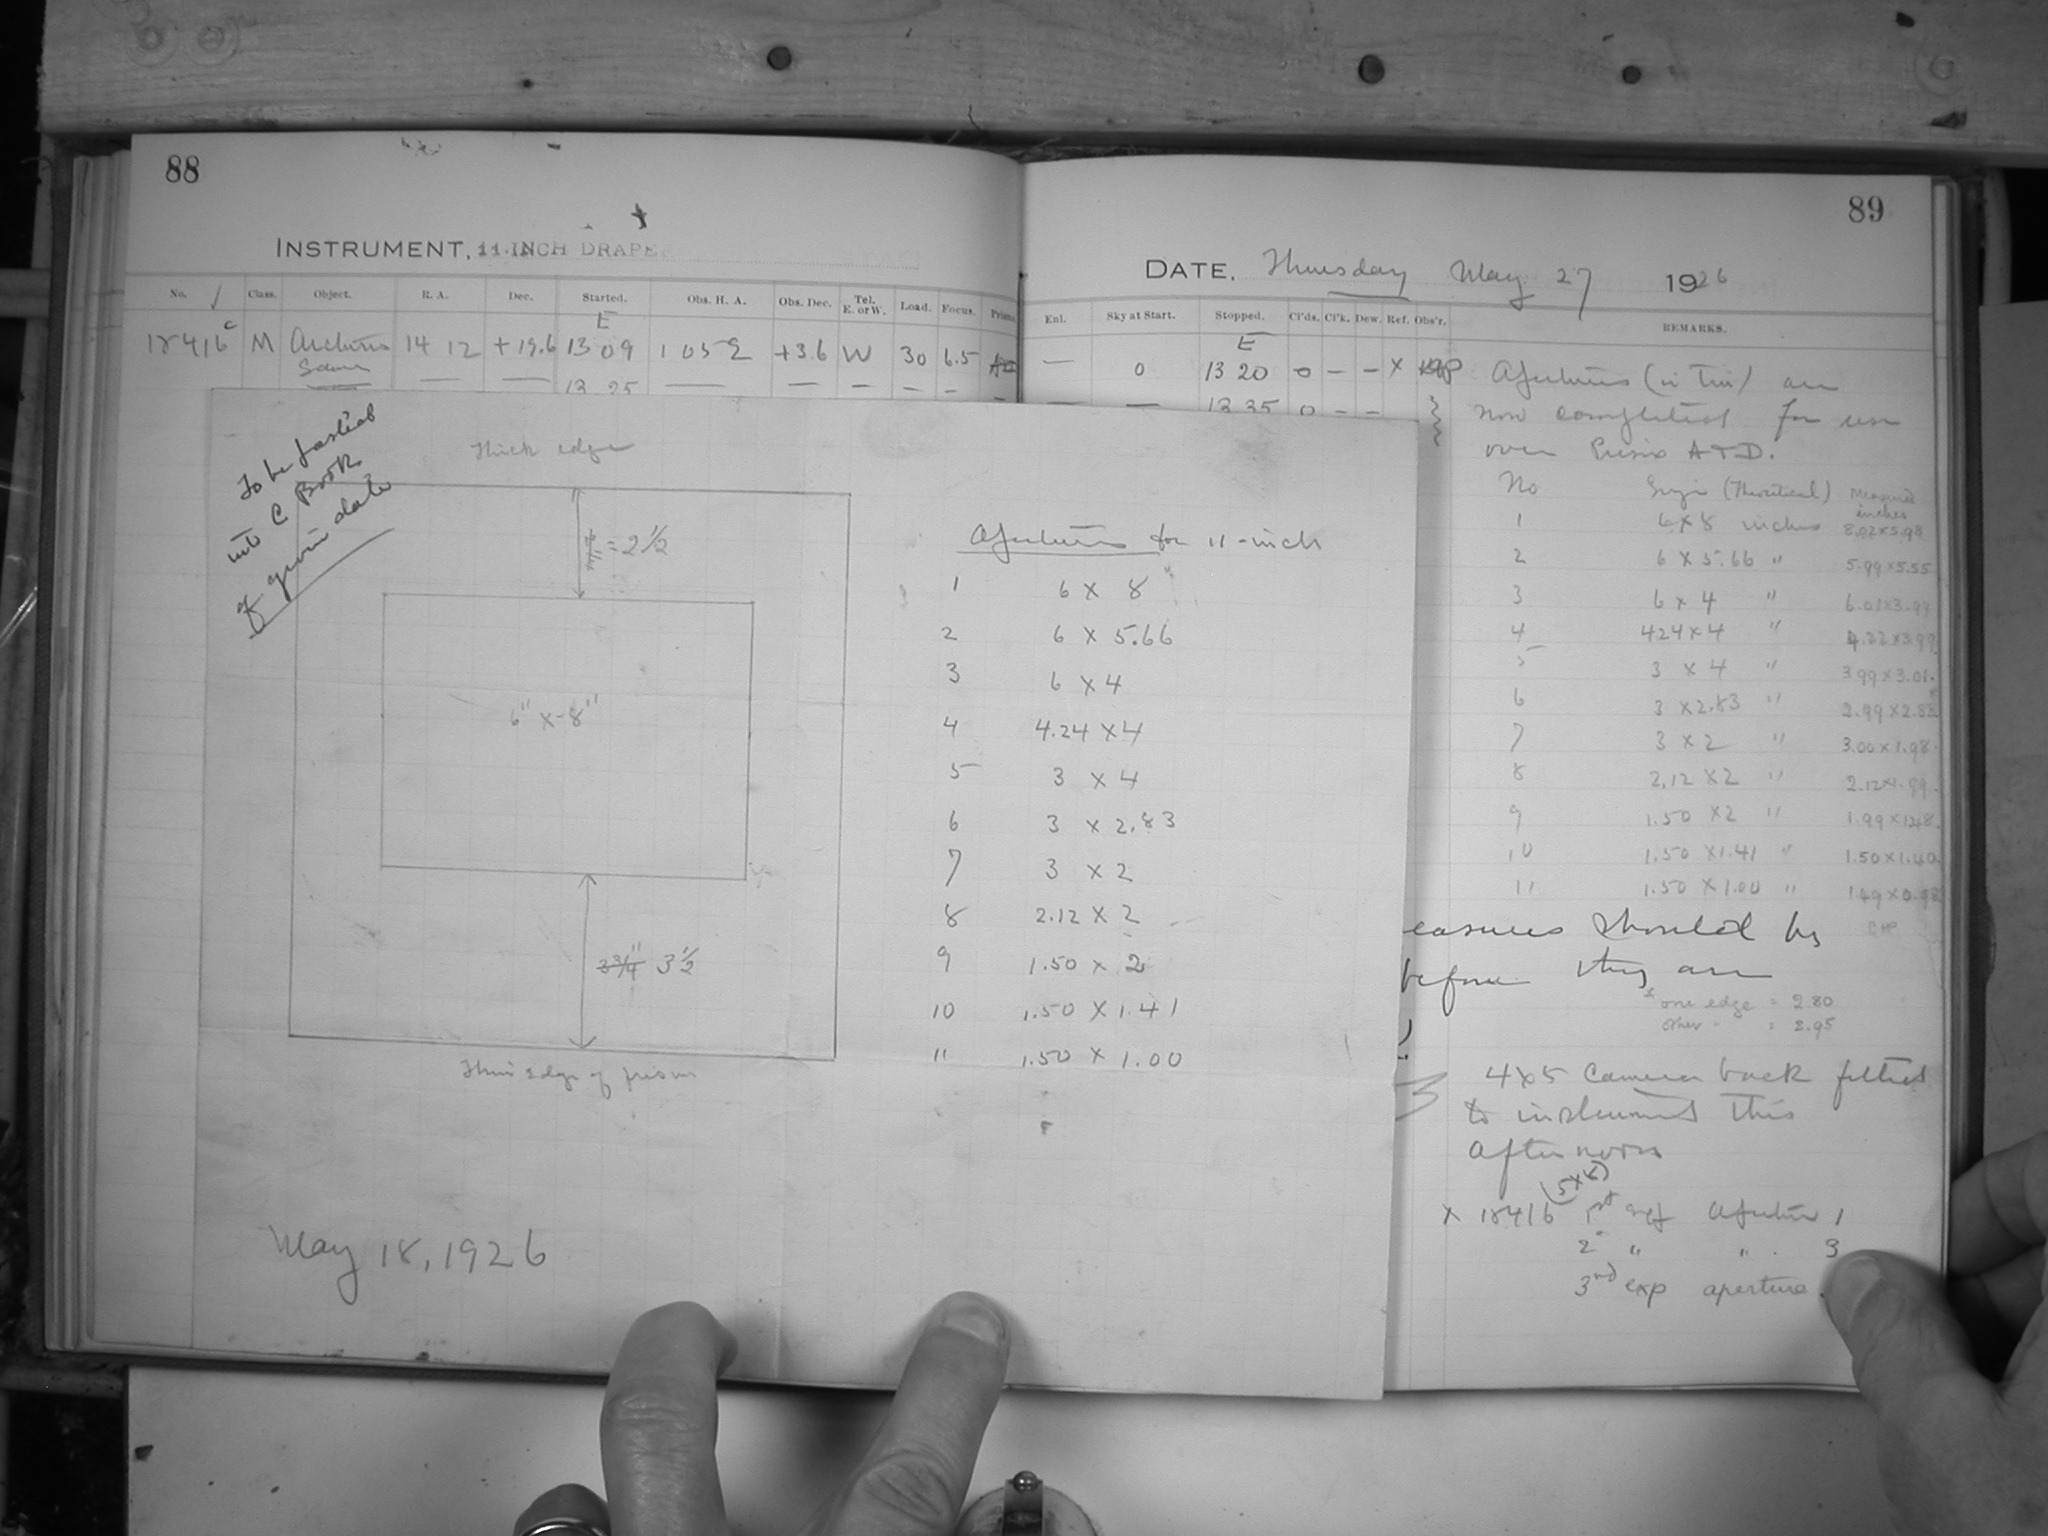 88
INSTRUMENT, 11-INCH DRAPE
No. Class. Object. R. A. Dec. Started. Obs. H. A. Obs. Dec. Tel. E. or W. Load. Focus. Prism
E
18416 c M Arcturus 14 12 +19.6 13 09 1 05 2 +3.6 W 30 6.5
Same — — 13 25 — — — — — —
89
DATE, Thursday May 27 1926
Enl. Sky at Start. Stopped. Cl'ds. Cl'k. Dew. Ref. Obs'r. REMARKS.
E
— 0 13 20 0 — — X
— — 13 35 0 — —
Apertures (in Tin) are
now completed for use
over Prisms A + D.
No Size (Theoretical) Measured inches
1 6 x 8 inches 8.02 x 5.98
2 6 x 5.66 " 5.99 x 5.55
3 6 x 4 " 6.01 x 3.99
4 424 x 4 " 4.22 x 3.99
5 3 x 4 " 3.99 x 3.01
6 3 x 2.83 " 2.99 x 2.88
7 3 x 2 " 3.00 x 1.98
8 2.12 x 2 " 2.12 x 1.99
9 1.50 x 2 " 1.99 x 1.48
10 1.50 x 1.41 " 1.50 x 1.40
11 1.50 x 1.00 " 1.49 x 0.98
easures should be
before they are
* one edge = 2.80
other " = 2.95
4x5 Camera back fitted
to instrument this
afternoon
(5x4)
X 18416 1st exp Aperture 1
2 " " 3
3rd exp aperture
To be pasted
into C Book
of given date
Thick edge
= 2 1/2
6" x 8"
3 3/4" 3 1/2
Thin edge of prism
May 18, 1926
Apertures for 11-inch
1 6 x 8
2 6 x 5.66
3 6 x 4
4 4.24 x 4
5 3 x 4
6 3 x 2.83
7 3 x 2
8 2.12 x 2
9 1.50 x 2
10 1.50 x 1.41
11 1.50 x 1.00